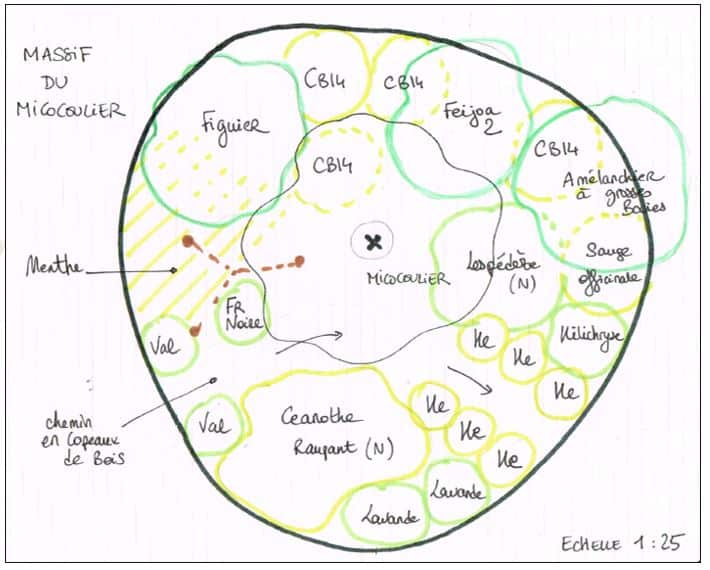 MASSIF
DU
MICOCOULIER
CB14
CB14
Figuier
Feijoa
2
CB14
CB14
Amélanchier
à grosses
Baies
Menthe
MICOCOULIER
Lespédèze
(N)
Sauge
officinale
FR
Noire
Val
He
He
Hélichryse
He
chemin
en copeaux
de Bois
Val
Ceanothe
Rampant (N)
He
He
He
Lavande
Lavande
ECHELLE 1:25